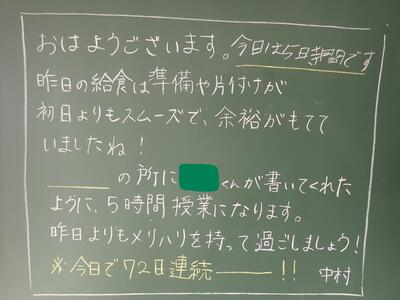 おはようございます。今日は5日時間です
昨日の給食は準備や片付けが
初日よりもスムーズで、余裕がもてて
いましたね!
の所に くんが書いてくれた
ように、5時間授業になります。
昨日よりもメリハリを持って過ごしましょう!
※今日で72日連続――!! 中村